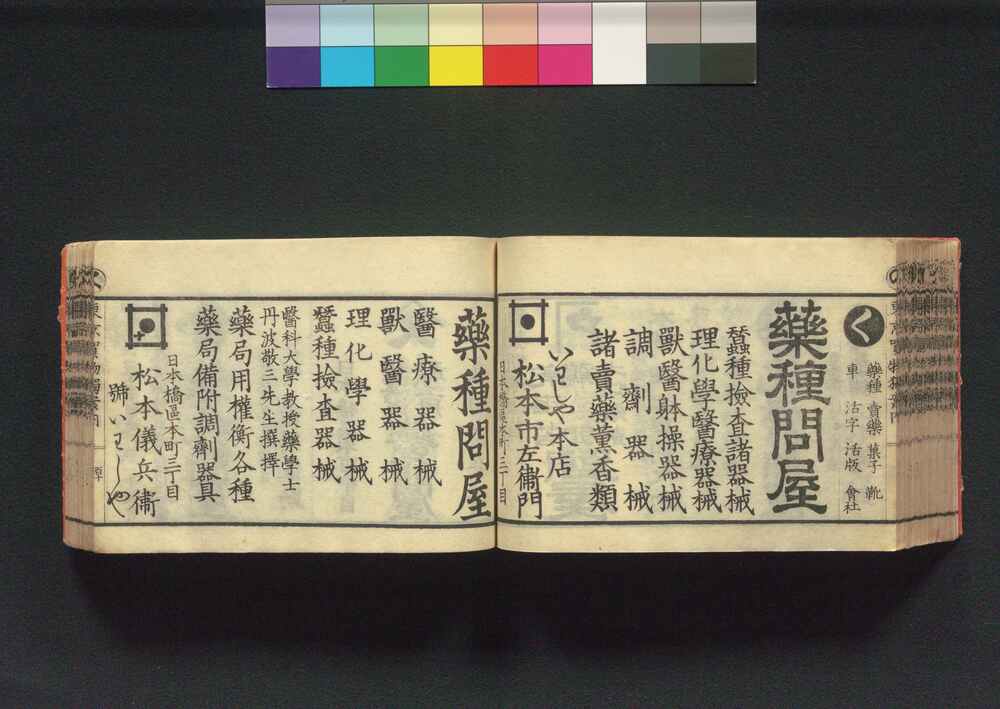 く
藥種 賣藥 菓子 靴
車 活字 活版 會社
藥種問屋
蠶種撿査諸器械
理化學醫療器械
獸醫躰操器械
調劑器械
諸賣藥薫香類
いわしや本店
日本橋區本町三丁目
松本市左衞門
藥種問屋
醫療器械
獸醫器械
理化學器械
蠶種撿査器械
醫科大學教授藥學士
丹波敬三先生撰擇
藥局用權衡各種
藥局備附調劑器具
日本橋區本町三丁目
松本儀兵衞
號いわしや